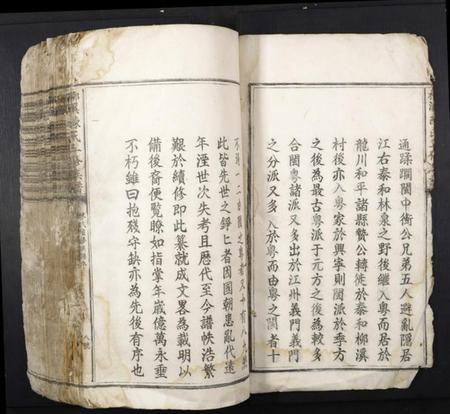 通蹂躪閩中衛公兄弟五人避亂隱居
江右泰和林泉之野後繼入粵而居於
龍川和平諸縣贊公轉徙於泰和柳溪
村後亦入粵家於興寧則閩派於季方
之後為最古粵派于元方之後為較多
合閩粵諸派又多出於江州義門義門
之分派又多入於粵而由粵之閩者十
不
此皆先世之錚匕者因國朝患亂代遠
年湮世次失考且歷代至今譜帙浩繁
艱於續修即此纂就成文畧為載明以
備後裔便覽瞭如指掌年歲億萬永垂
不朽雖曰抱殘守缺亦為先後有序也